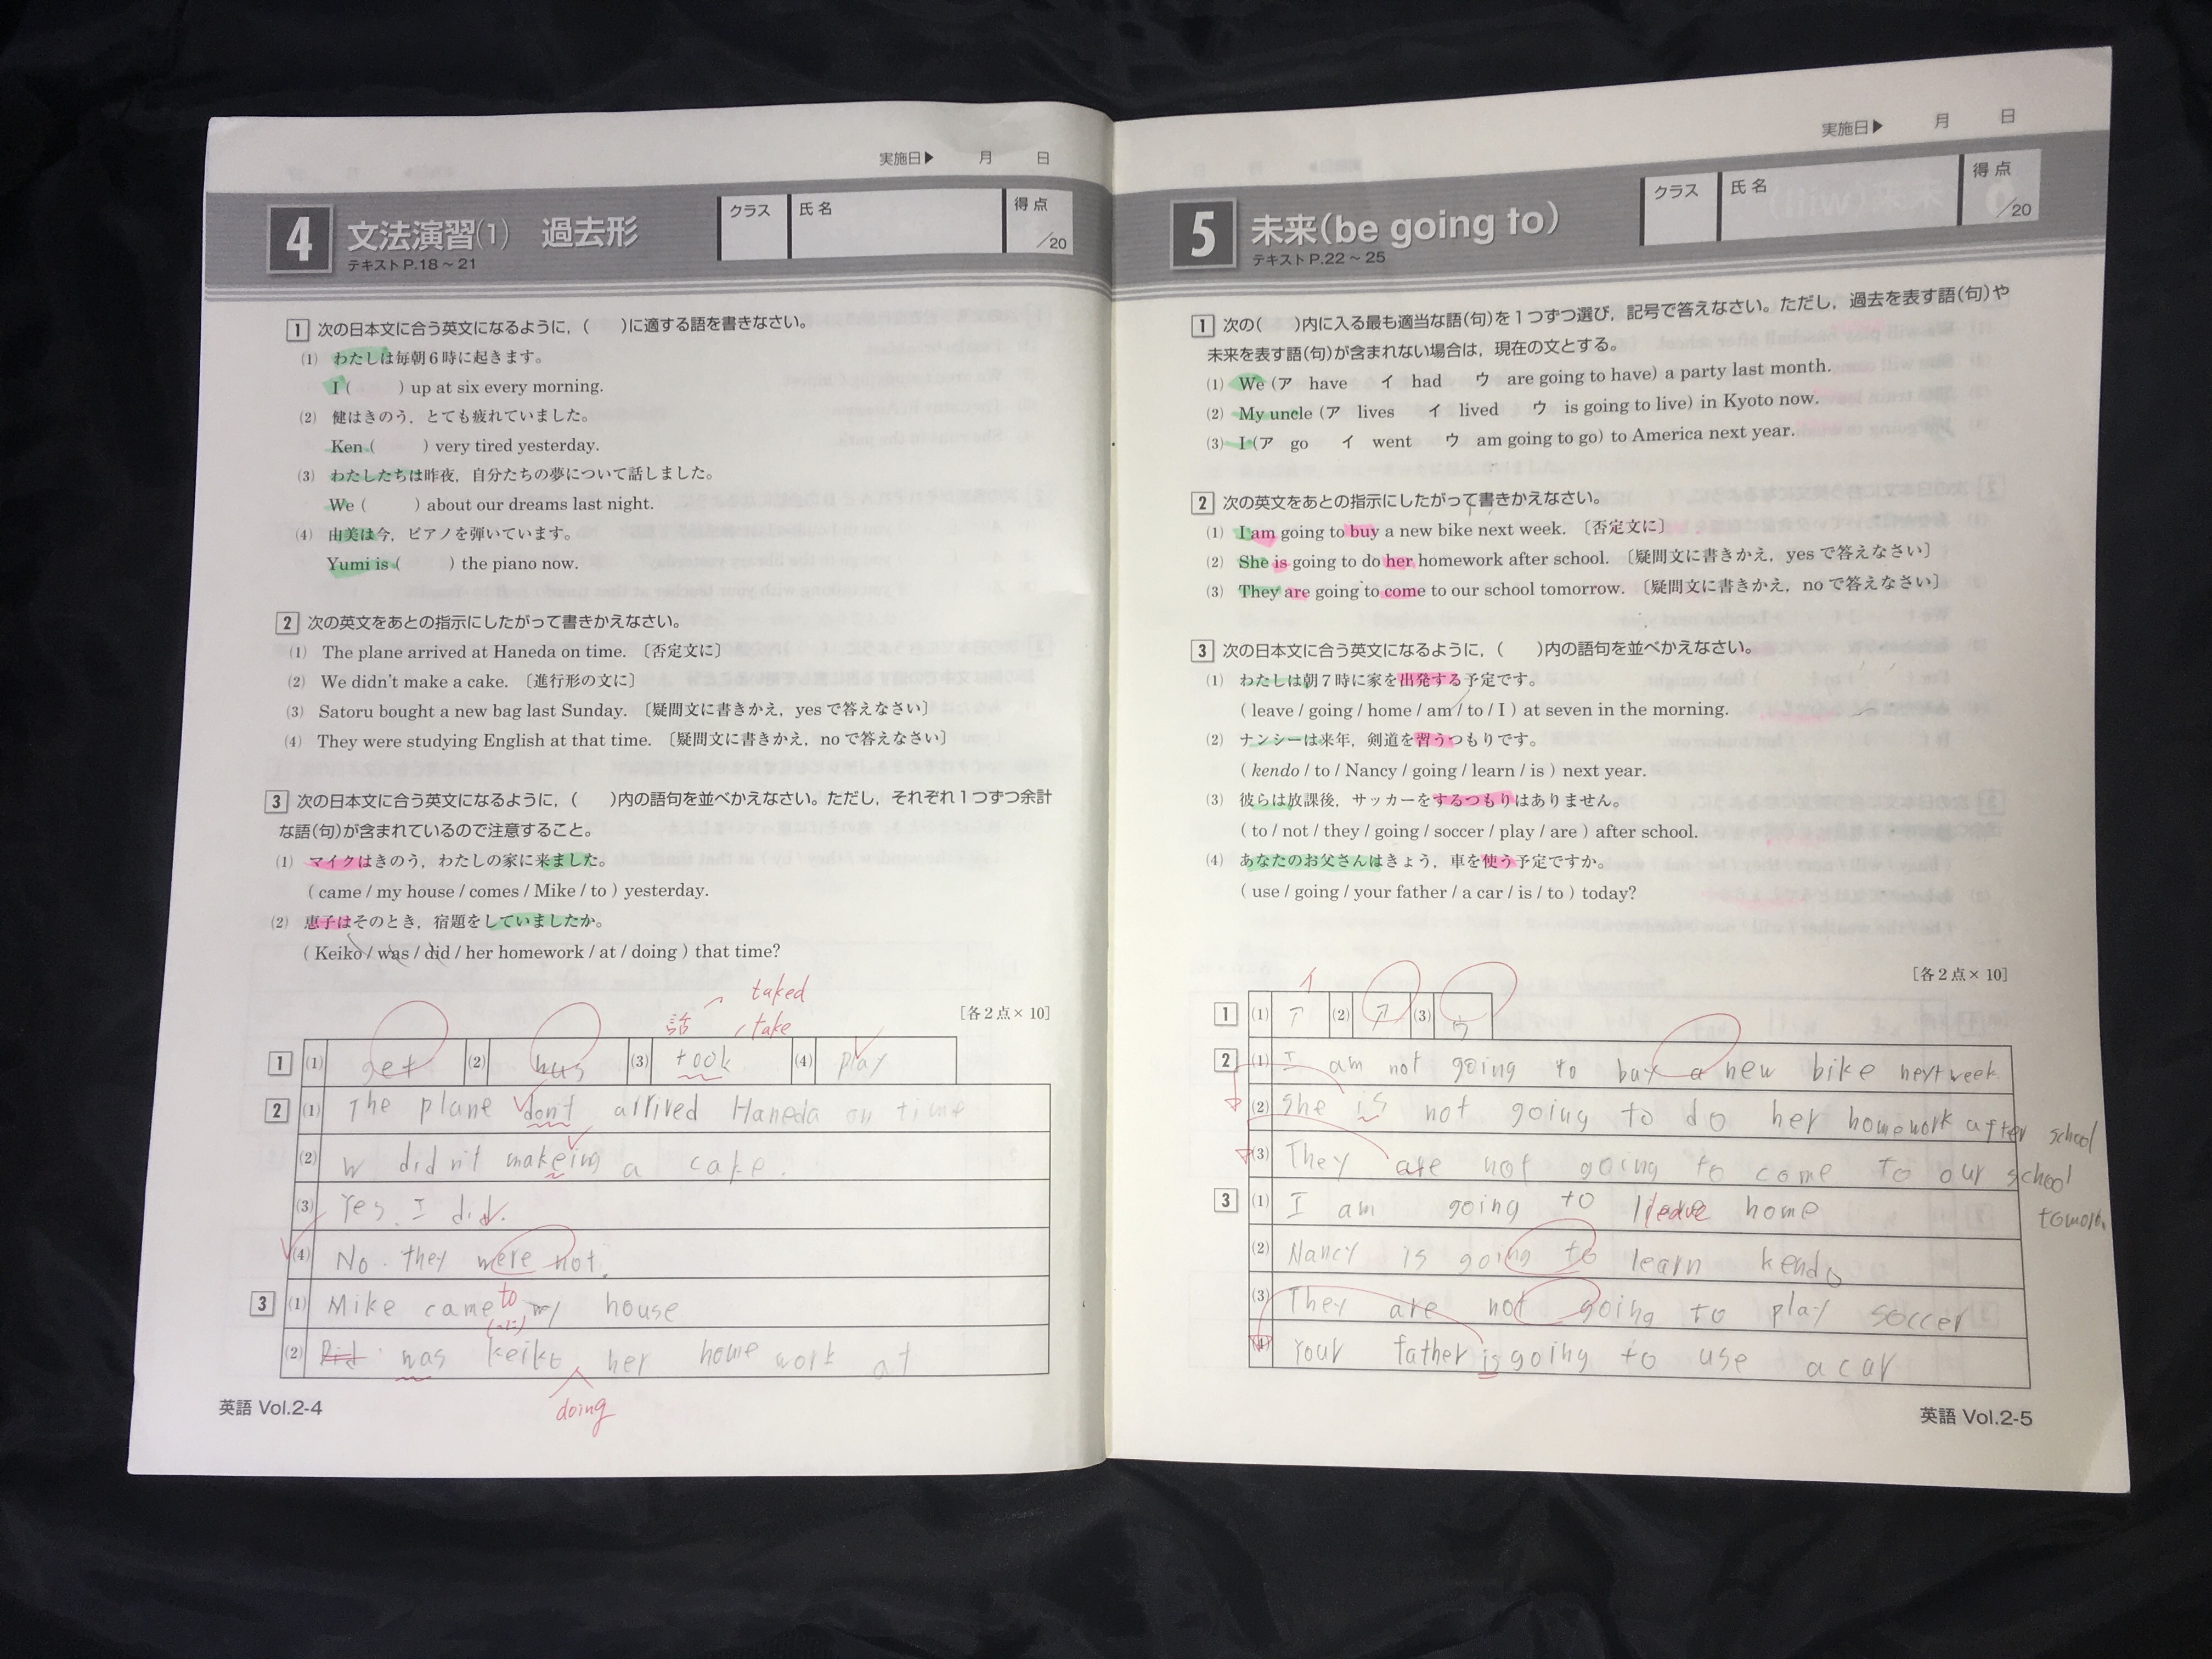 実施日▶ 月 日
4 文法演習(1) 過去形
テキストP.18～21
クラス 氏名 得点 /20
1 次の日本文に合う英文になるように,( )に適する語を書きなさい。
(1) わたしは毎朝6時に起きます。
I ( ) up at six every morning.
(2) 健はきのう,とても疲れていました。
Ken ( ) very tired yesterday.
(3) わたしたちは昨夜,自分たちの夢について話しました。
We ( ) about our dreams last night.
(4) 由美は今,ピアノを弾いています。
Yumi is ( ) the piano now.
2 次の英文をあとの指示にしたがって書きかえなさい。
(1) The plane arrived at Haneda on time. 〔否定文に〕
(2) We didn't make a cake. 〔進行形の文に〕
(3) Satoru bought a new bag last Sunday. 〔疑問文に書きかえ,yesで答えなさい〕
(4) They were studying English at that time. 〔疑問文に書きかえ,noで答えなさい〕
3 次の日本文に合う英文になるように,( )内の語句を並べかえなさい。ただし,それぞれ1つずつ余計
な語(句)が含まれているので注意すること。
(1) マイクはきのう,わたしの家に来ました。
( came / my house / comes / Mike / to ) yesterday.
(2) 恵子はそのとき,宿題をしていましたか。
( Keiko / was / did / her homework / at / doing ) that time?
[各2点×10]
taked
話 take
1 (1) get (2) (3) took (4) play
2 (1) The plane don't arrived Haneda on time
(2) W didn't makeing a cake.
(3) Yes. I did.
(4) No. they were not.
3 (1) Mike came to my house
(2) Did was keiko her home work at
doing
英語 Vol.2-4
実施日▶ 月 日
5 未来(be going to)
テキストP.22～25
クラス 氏名 得点 /20
1 次の( )内に入る最も適当な語(句)を1つずつ選び,記号で答えなさい。ただし,過去を表す語(句)や
未来を表す語(句)が含まれない場合は,現在の文とする。
(1) We (ア have イ had ウ are going to have) a party last month.
(2) My uncle (ア lives イ lived ウ is going to live) in Kyoto now.
(3) I (ア go イ went ウ am going to go) to America next year.
2 次の英文をあとの指示にしたがって書きかえなさい。
(1) I am going to buy a new bike next week. 〔否定文に〕
(2) She is going to do her homework after school. 〔疑問文に書きかえ,yesで答えなさい〕
(3) They are going to come to our school tomorrow. 〔疑問文に書きかえ,noで答えなさい〕
3 次の日本文に合う英文になるように,( )内の語句を並べかえなさい。
(1) わたしは朝7時に家を出発する予定です。
( leave / going / home / am / to / I ) at seven in the morning.
(2) ナンシーは来年,剣道を習うつもりです。
( kendo / to / Nancy / going / learn / is ) next year.
(3) 彼らは放課後,サッカーをするつもりはありません。
( to / not / they / going / soccer / play / are ) after school.
(4) あなたのお父さんはきょう,車を使う予定ですか。
( use / going / your father / a car / is / to ) today?
[各2点×10]
イ
1 (1) ア (2) ア (3) ウ
2 (1) I am not going to buy a new bike next week.
(2) She is not going to do her homework after school
(3) They are not going to come to our school
3 (1) I am going to leave home
(2) Nancy is going to learn kendo
(3) They are not going to play soccer
(4) Your father is going to use a car
英語 Vol.2-5